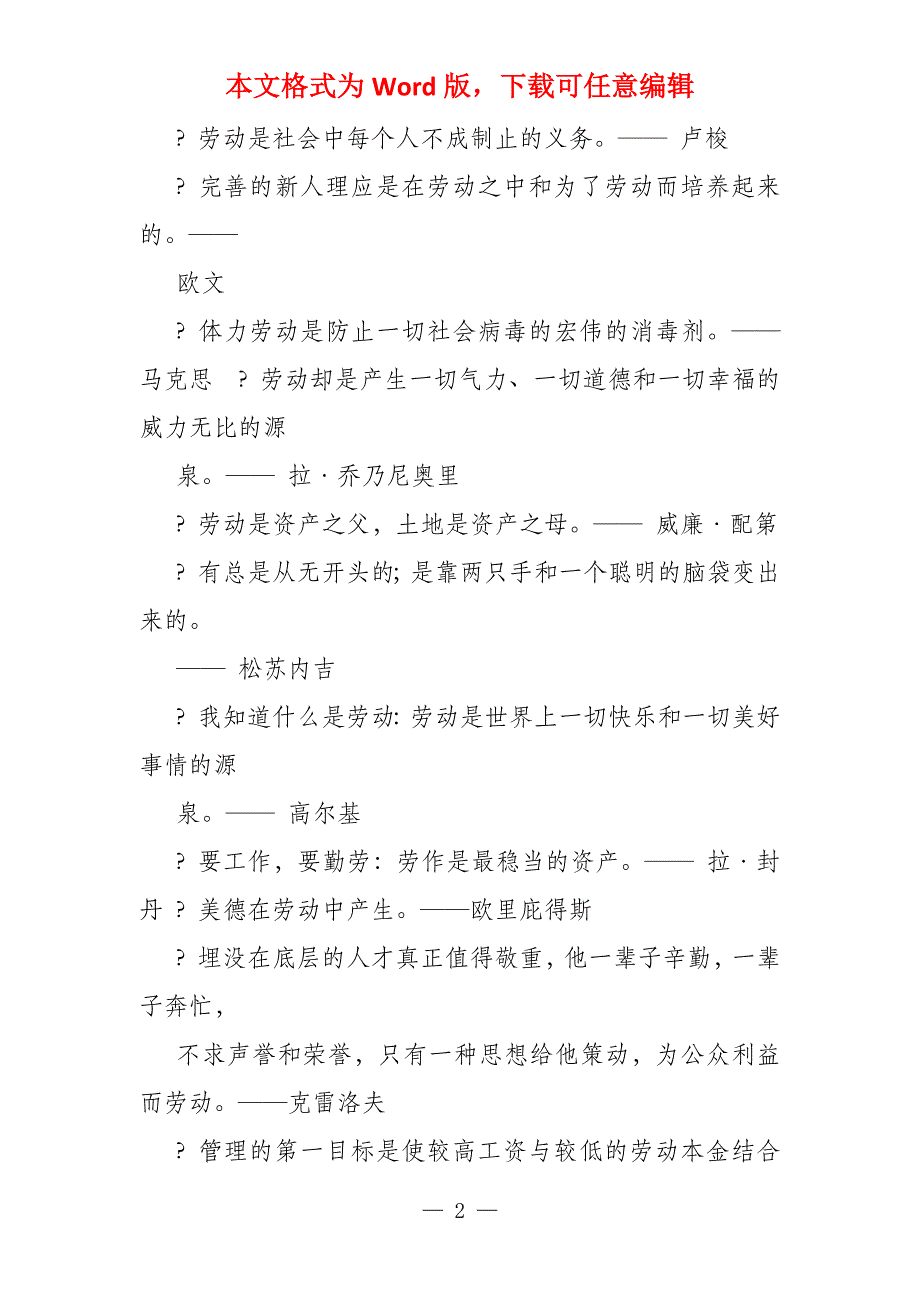 本文格式为 Word 版，下载可任意编辑
? 劳动是社会中每个人不成制止的义务。—— 卢梭
? 完善的新人理应是在劳动之中和为了劳动而培养起来
的。——
欧文
? 体力劳动是防止一切社会病毒的宏伟的消毒剂。——
马克思 ? 劳动却是产生一切气力、一切道德和一切幸福的
威力无比的源
泉。—— 拉·乔乃尼奥里
? 劳动是资产之父，土地是资产之母。—— 威廉·配第
? 有总是从无开头的; 是靠两只手和一个聪明的脑袋变出
来的。
—— 松苏内吉
? 我知道什么是劳动: 劳动是世界上一切快乐和一切美好
事情的源
泉。—— 高尔基
? 要工作，要勤劳：劳作是最稳当的资产。—— 拉·封
丹 ? 美德在劳动中产生。——欧里庇得斯
? 埋没在底层的人才真正值得敬重，他一辈子辛勤，一辈
子奔忙，
不求声誉和荣誉，只有一种思想给他策动，为公众利益
而劳动。——克雷洛夫
? 管理的第一目标是使较高工资与较低的劳动本金结合
— 2 —